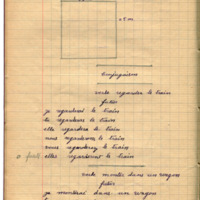 15 m
Conjugaison
verbe regarder le train
futur
je regarderai le train
tu regarderas le train
elle regardera le train
nous regarderons le train
vous regarderez le train
elles regarderont le train
verbe monter dans un wagon
futur
je monterai dans un wagon